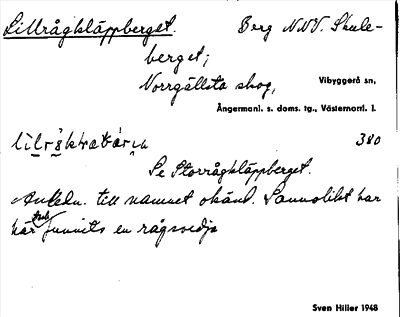 Lillrågkläppberget. Berg NNV. Skule-
berget;
Norrgällsta skog,
Vibyggerå sn,
Ångermanl. s. doms. tg., Västernorrl. l.
380
Se Storrågkläppberget.
Anledn. till namnet okänd. Sannolikt har
här funnits en rågsvedja
Sven Hiller 1948